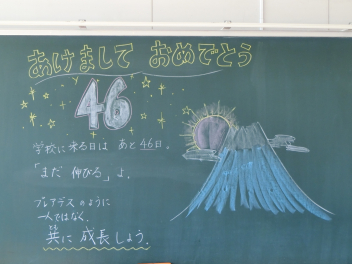 あけまして おめでとう
46
学校に来る日は あと46日。
「まだ 伸びる」よ。
プレアデスのように
一人ではなく、
共に 成長しよう。